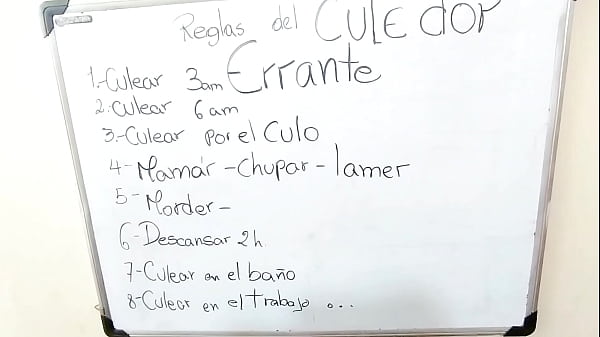 Reglas del CULEdor
Errante
1.-Culear 3am
2.-Culear 6am
3.-Culear por el Culo
4-Mamár-Chupar-lamer
5-Morder-
6-Descansar 2h.
7-Culear en el baño
8-Culear en el trabajo ...